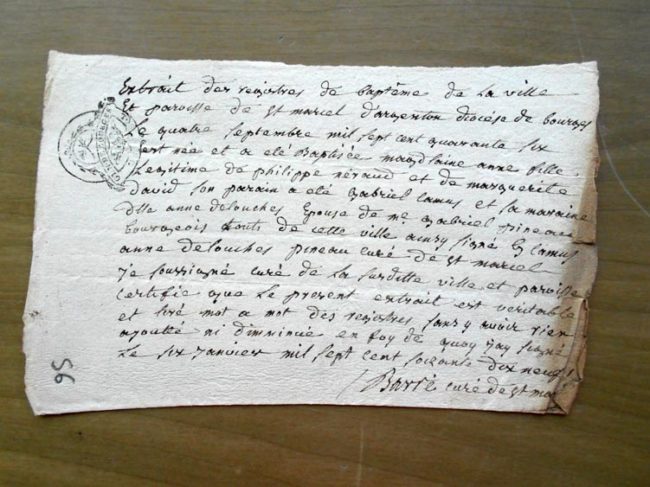 Extrait des registres de baptême de la ville
Et paroisse de St marcel d'argenton diocése de bourges
Le quatre septembre mil sept cent quarante six
Est née et a eté Baptisée magdelaine anne fille
Legitime de philippe néraud et de marguerite
David son parain a eté gabriel camus et sa maraine
Dlle anne delouches Epouse de me gabriel pineau
bourgeois touts de cette ville ainsy signé G camus
anne delouches pineau curé de st marcel
je soussigné curé de la susditte ville et paroisse
certifie que le present extrait est veritable
et tiré mot a mot des registres sans y avoir rien
ajoutté ni diminuée en foy de quoy jay signé
Le six janvier mil sept cent soixante dix neuf
Barré curé de st mar
56